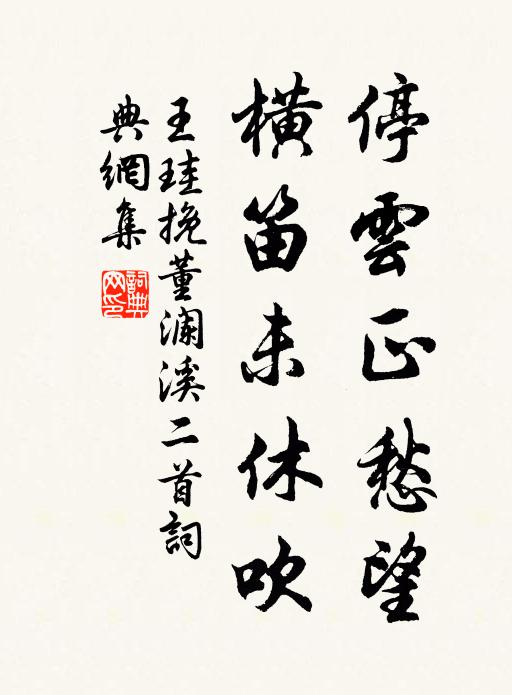 停雲正愁望
橫笛未休吹
王珪挽董澜溪二首詞
典網集
詞典网印